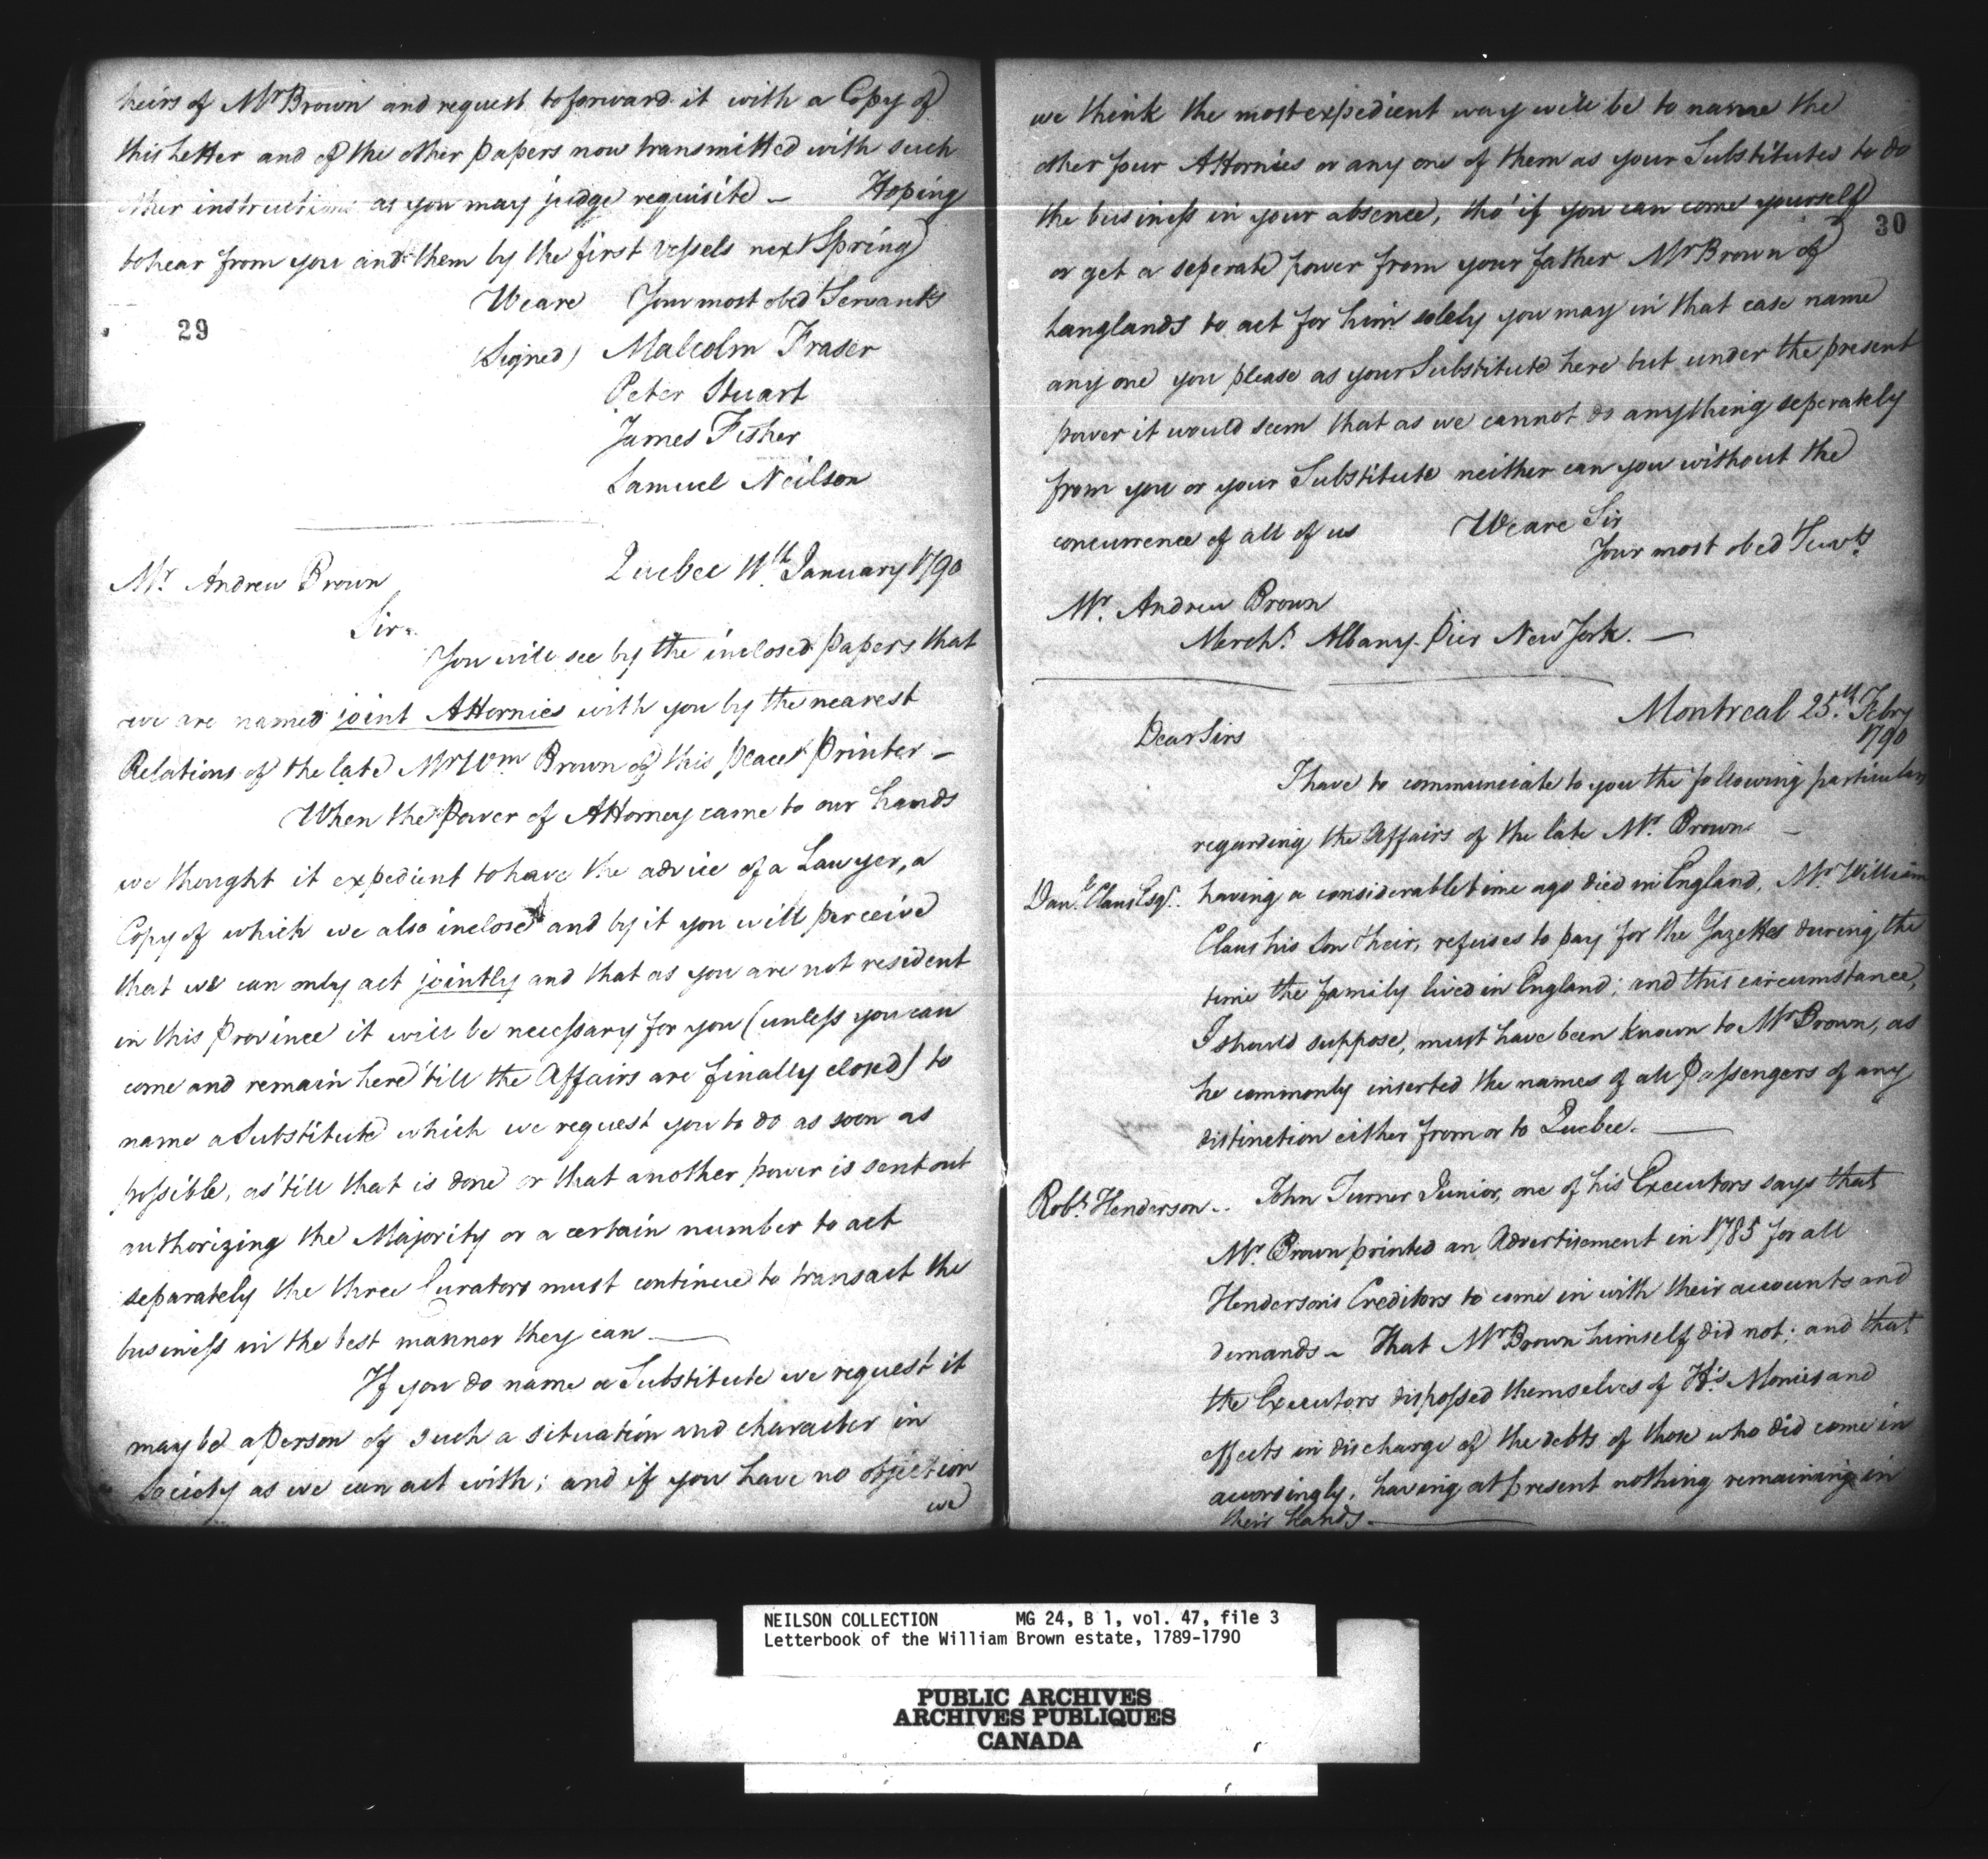 heirs of Mr Brown and request to forward it with a Copy of
this Letter and of the other papers now transmitted with such
other instructions as you may judge requisite – Hoping
to hear from you and them by the first Vessels next Spring
We are Your most obed Servants
29
(Signed) Malcolm Fraser
Peter Stuart
James Fisher
Samuel Neilson
Quebec 11th January 1790
Mr. Andrew Brown
Sir
You will see by the inclosed papers that
we are named joint Attornies with you by the nearest
Relations of the late Mr Wm Brown of this place Printer –
When the Power of Attorney came to our hands
we thought it expedient to have the advice of a Lawyer, a
Copy of which we also inclose and by it you will perceive
that we can only act jointly and that as you are not resident
in this Province it will be necessary for you (unless you can
come and remain here 'till the Affairs are finally closed) to
name a Substitute which we request you to do as soon as
possible, as 'till that is done or that another power is sent out
authorizing the Majority or a certain number to act
separately the three Curators must continue to transact the
business in the best manner they can —
If you do name a Substitute we request it
may be a Person of such a situation and character in
Society as we can act with; and if you have no objection
we
we think the most expedient way will be to name the
other four Attornies or any one of them as your Substitutes to do
the business in your absence, tho' if you can come yourself
30
or get a seperate power from your father Mr Brown of
Langlands to act for him solely you may in that case name
any one you please as your Substitute here but under the present
power it would seem that as we cannot do anything seperately
from you or your Substitute neither can you without the
concurrence of all of us We are Sir
Your most obed Servts
Mr. Andrew Brown
Mercht. Albany Pier New York. —
Montreal 25th. Febry
1790
Dear Sirs
I have to communicate to you the following particulars
regarding the Affairs of the late Mr. Brown –
Danl. Claus Esqr. having a considerable time ago died in England, Mr William
Claus his Son & heir, refuses to pay for the Gazettes during the
time the family lived in England; and this circumstance,
I should suppose, must have been known to Mr Brown, as
he commonly inserted the names of all Passengers of any
distinction either from or to Quebec. —
Robt. Henderson.. John Turner Junior, one of his Executors says that
Mr. Brown printed an Advertisement in 1785 for all
Henderson's Creditors to come in with their accounts and
demands – That Mr Brown himself did not; and that
the Executors disposed themselves of H's Monies and
effects in discharge of the debts of those who did come in
accordingly, having at present nothing remaining in
their hands. —
NEILSON COLLECTION MG 24, B 1, vol. 47, file 3
Letterbook of the William Brown estate, 1789-1790
PUBLIC ARCHIVES
ARCHIVES PUBLIQUES
CANADA